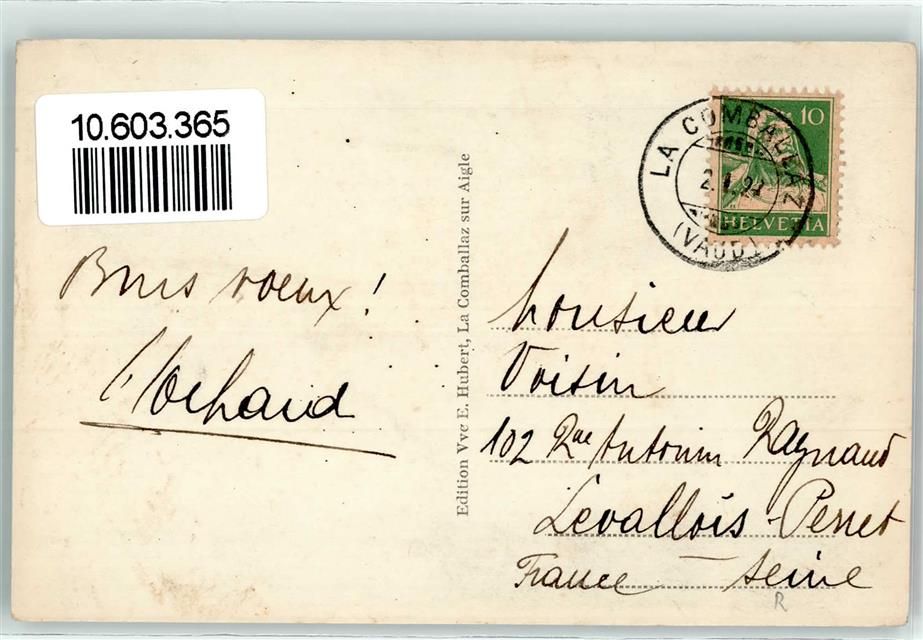 10.603.365
Bons voeux !
Edition Vve E. Hubert, La Comballaz sur Aigle
LA COMBALLAZ
(VAUD)
10
HELVETIA
Monsieur
Voisin
102 Rue Antonin Raynaud
Levallois-Perret
France – Seine
R